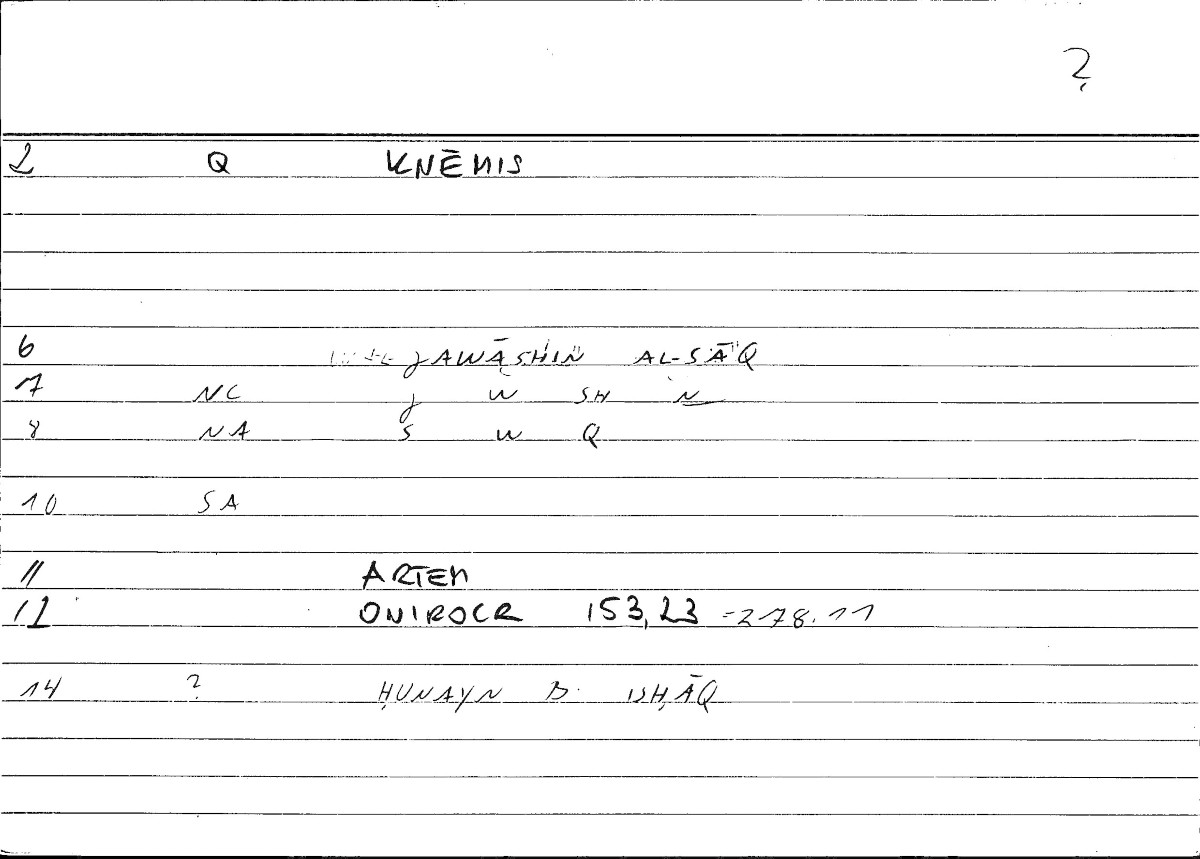 ?
2 Q KNĒMIS
6 JAWĀSHIN AL-SĀQ
7 NC J W SH N
8 NA S W Q
10 SA
11 ARTEM
12 ONIROCR 153,23 =278.11
14 ? ḤUNAYN B. ISḤĀQ